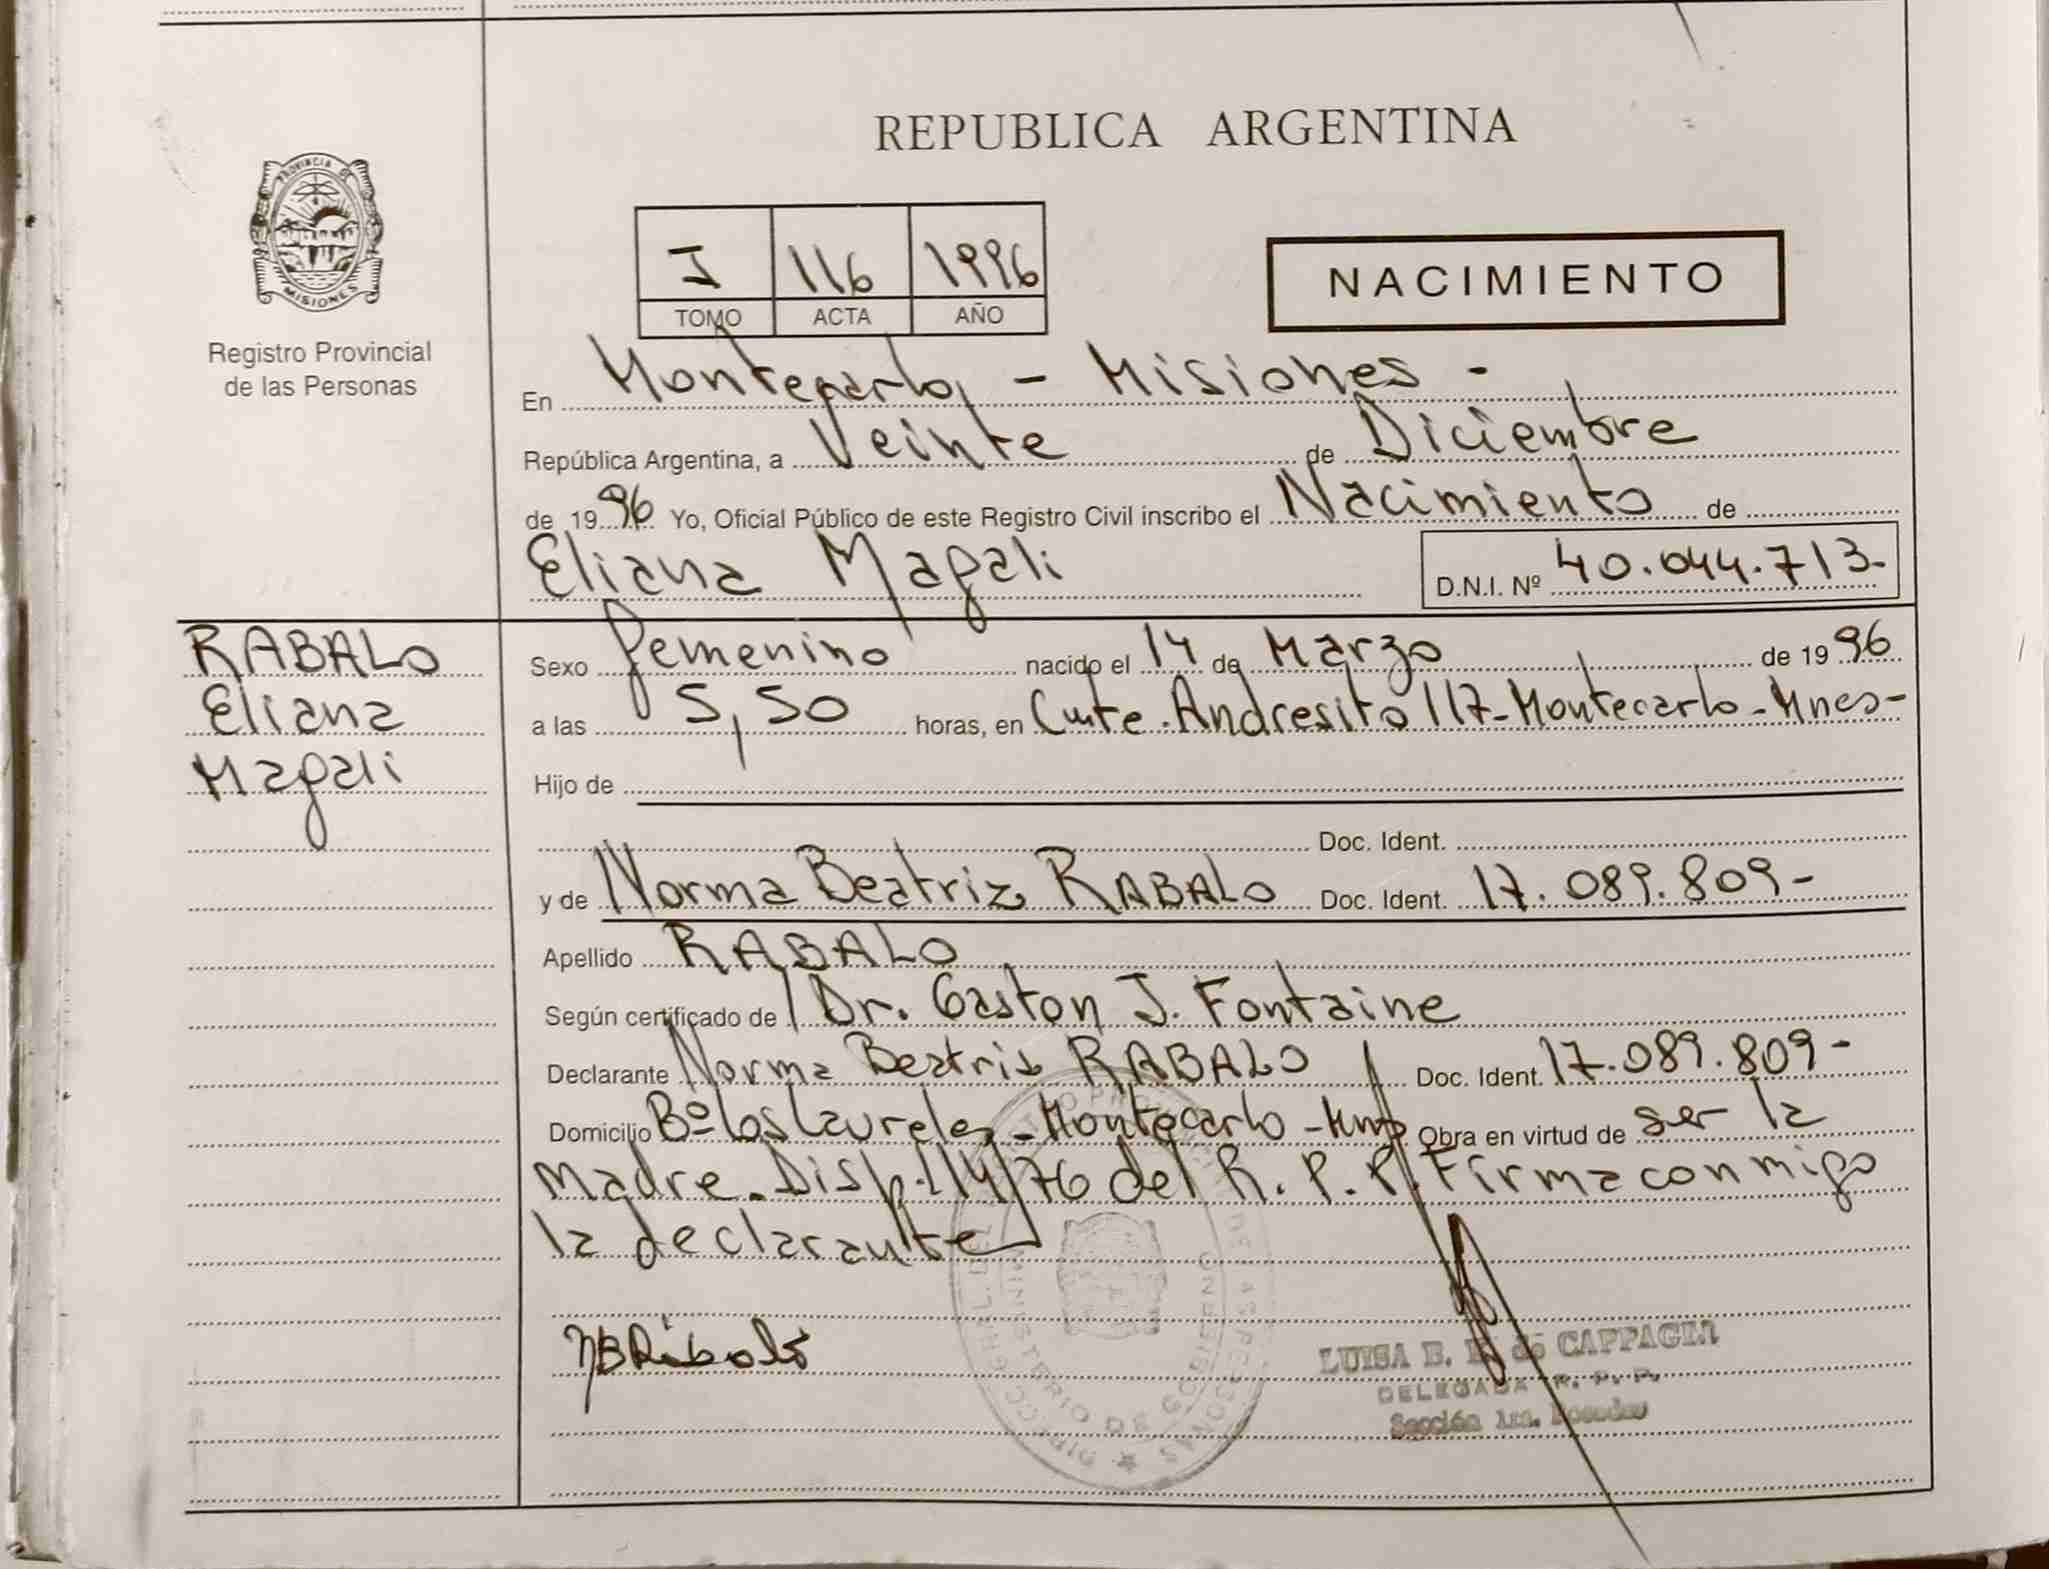 REPUBLICA ARGENTINA
PROVINCIA DE
MISIONES
Registro Provincial
de las Personas
I 116 1996
TOMO ACTA AÑO
NACIMIENTO
En Montecarlo, - Misiones -
República Argentina, a Veinte de Diciembre
de 1996 Yo, Oficial Público de este Registro Civil inscribo el Nacimiento de
Eliana Magali D.N.I. Nº 40.044.713-
RABALO
Eliana
Magali
Sexo femenino nacido el 14 de Marzo de 1996
a las 5,50 horas, en Cmte. Andresito 117-Montecarlo-Mnes-
Hijo de
Doc. Ident.
y de Norma Beatriz RABALO Doc. Ident. 17.089.809-
Apellido RABALO
Según certificado de Dr. Gaston J. Fontaine
Declarante Norma Beatriz RABALO Doc. Ident. 17.089.809-
Domicilio Bº los Laureles - Montecarlo - Mnes Obra en virtud de ser la
madre. Disp. 114/76 del R. P. P. Firma conmigo
la declarante
NBRabalo
LUISA E. de CAPPAGLI
DELEGADA R. P. P.
Sección 1ra. Posadas
MINISTERIO DE GOBIERNO